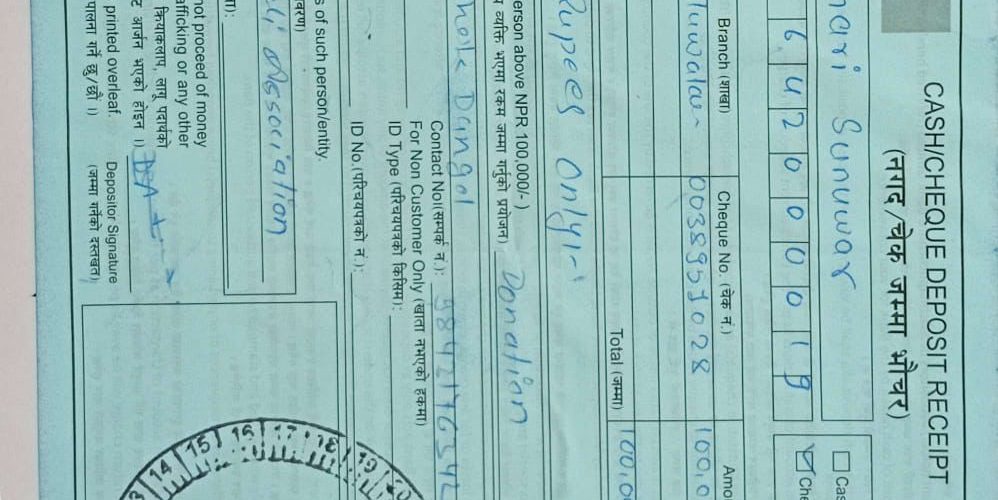 CASH/CHEQUE DEPOSIT RECEIPT
(नगद/चेक जम्मा भौचर)
Sunuwar
6 4 2 0 0 0 0 1 9
Branch (शाखा) Cheque No. (चेक नं.)
00389591028 100,0
Total (जम्मा) 100,0
Rupees Only/-
erson above NPR 100,000/-)
व्यक्ति भएमा रकम जम्मा गर्नुको प्रयोजन) Donation
Dangol
Contact No.(सम्पर्क नं.):
For Non Customer Only (खाता नभएको हकमा)
ID Type (परिचयपत्रको किसिम):
ID No.(परिचयपत्रको नं.):
s of such person/entity.
Association
not proceed of money
afficking or any other
क्रियाकलाप, लागू पदार्थको
आर्जन भएको होइन ।)
printed overleaf. Depositor Signature
पालना गर्ने छु/छौं ।) (जम्मा गर्नेको दस्तखत)
14 15 16 17 18 19 20